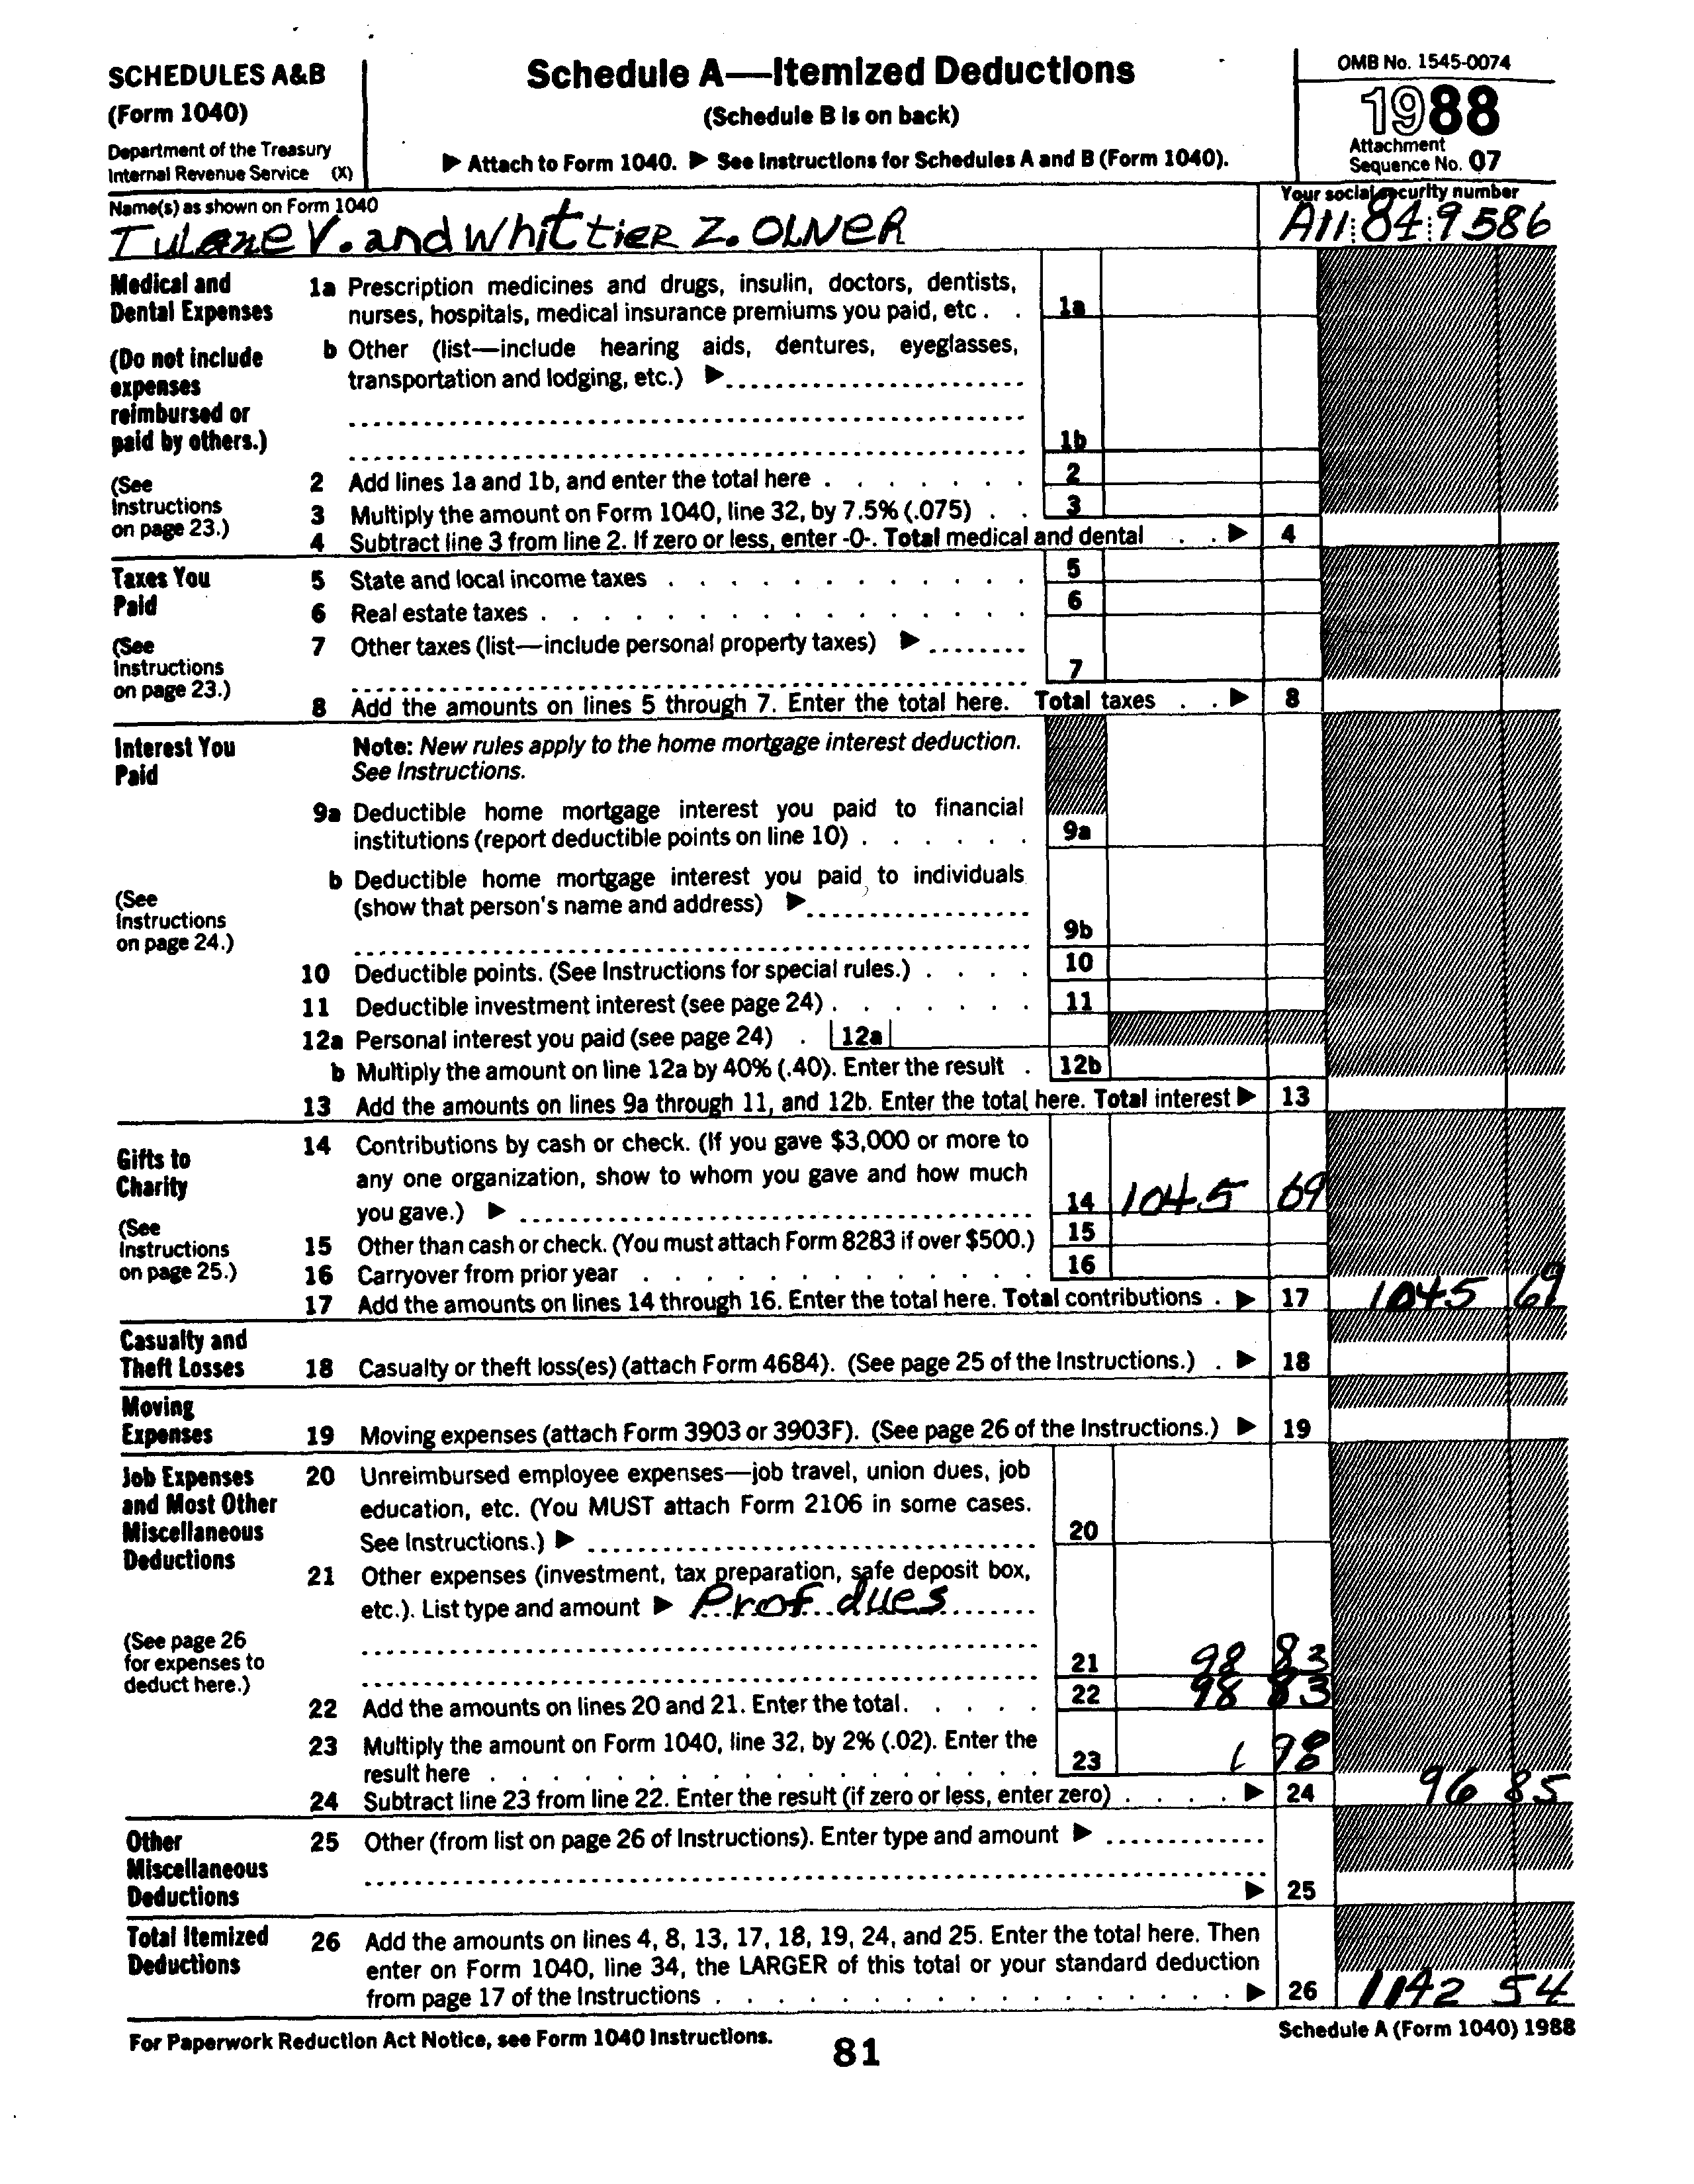 SCHEDULES A&B
(Form 1040)
Department of the Treasury
Internal Revenue Service (X)
Schedule A—Itemized Deductions
(Schedule B is on back)
▶ Attach to Form 1040. ▶ See Instructions for Schedules A and B (Form 1040).
OMB No. 1545-0074
1988
Attachment
Sequence No. 07
Name(s) as shown on Form 1040
Tulane V. and Whittier Z. OLNER
Your social security number
A11:84:9586
Medical and
Dental Expenses
(Do not include
expenses
reimbursed or
paid by others.)
(See
Instructions
on page 23.)
1a Prescription medicines and drugs, insulin, doctors, dentists,
nurses, hospitals, medical insurance premiums you paid, etc . . 1a
b Other (list—include hearing aids, dentures, eyeglasses,
transportation and lodging, etc.) ▶
1b
2 Add lines 1a and 1b, and enter the total here . . . . . . . 2
3 Multiply the amount on Form 1040, line 32, by 7.5% (.075) . . 3
4 Subtract line 3 from line 2. If zero or less, enter -0-. Total medical and dental . . ▶ 4
Taxes You
Paid
(See
Instructions
on page 23.)
5 State and local income taxes . . . . . . . . . . . 5
6 Real estate taxes . . . . . . . . . . . . . . . 6
7 Other taxes (list—include personal property taxes) ▶
7
8 Add the amounts on lines 5 through 7. Enter the total here. Total taxes . . ▶ 8
Interest You
Paid
(See
Instructions
on page 24.)
Note: New rules apply to the home mortgage interest deduction.
See Instructions.
9a Deductible home mortgage interest you paid to financial
institutions (report deductible points on line 10) . . . . . . 9a
b Deductible home mortgage interest you paid to individuals
(show that person's name and address) ▶
9b
10 Deductible points. (See Instructions for special rules.) . . . . 10
11 Deductible investment interest (see page 24) . . . . . . . 11
12a Personal interest you paid (see page 24) . 12a
b Multiply the amount on line 12a by 40% (.40). Enter the result . 12b
13 Add the amounts on lines 9a through 11, and 12b. Enter the total here. Total interest ▶ 13
Gifts to
Charity
(See
Instructions
on page 25.)
14 Contributions by cash or check. (If you gave $3,000 or more to
any one organization, show to whom you gave and how much
you gave.) ▶ 14 1045 69
15 Other than cash or check. (You must attach Form 8283 if over $500.) 15
16 Carryover from prior year . . . . . . . . . . . . 16
17 Add the amounts on lines 14 through 16. Enter the total here. Total contributions . ▶ 17 1045 69
Casualty and
Theft Losses
18 Casualty or theft loss(es) (attach Form 4684). (See page 25 of the Instructions.) . ▶ 18
Moving
Expenses
19 Moving expenses (attach Form 3903 or 3903F). (See page 26 of the Instructions.) ▶ 19
Job Expenses
and Most Other
Miscellaneous
Deductions
(See page 26
for expenses to
deduct here.)
20 Unreimbursed employee expenses—job travel, union dues, job
education, etc. (You MUST attach Form 2106 in some cases.
See Instructions.) ▶ 20
21 Other expenses (investment, tax preparation, safe deposit box,
etc.). List type and amount ▶ Prof. dues
21 98 83
22 Add the amounts on lines 20 and 21. Enter the total. . . . . 22 98 83
23 Multiply the amount on Form 1040, line 32, by 2% (.02). Enter the
result here . . . . . . . . . . . . . . . . . 23 1 98
24 Subtract line 23 from line 22. Enter the result (if zero or less, enter zero) . . . . ▶ 24 96 85
Other
Miscellaneous
Deductions
25 Other (from list on page 26 of Instructions). Enter type and amount ▶
▶ 25
Total Itemized
Deductions
26 Add the amounts on lines 4, 8, 13, 17, 18, 19, 24, and 25. Enter the total here. Then
enter on Form 1040, line 34, the LARGER of this total or your standard deduction
from page 17 of the Instructions . . . . . . . . . . . . . . . . . ▶ 26 1142 54
For Paperwork Reduction Act Notice, see Form 1040 Instructions.
81
Schedule A (Form 1040) 1988